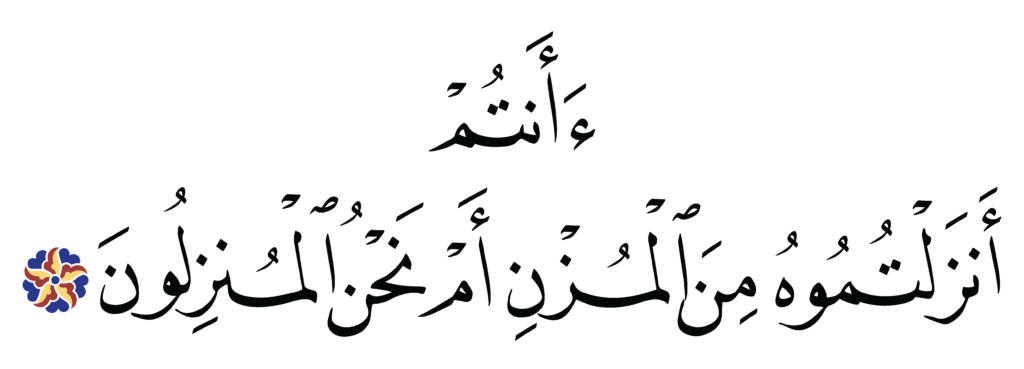 ءَأَنتُمْ
أَنزَلْتُمُوهُ مِنَ ٱلْمُزْنِ أَمْ نَحْنُ ٱلْمُنزِلُونَ